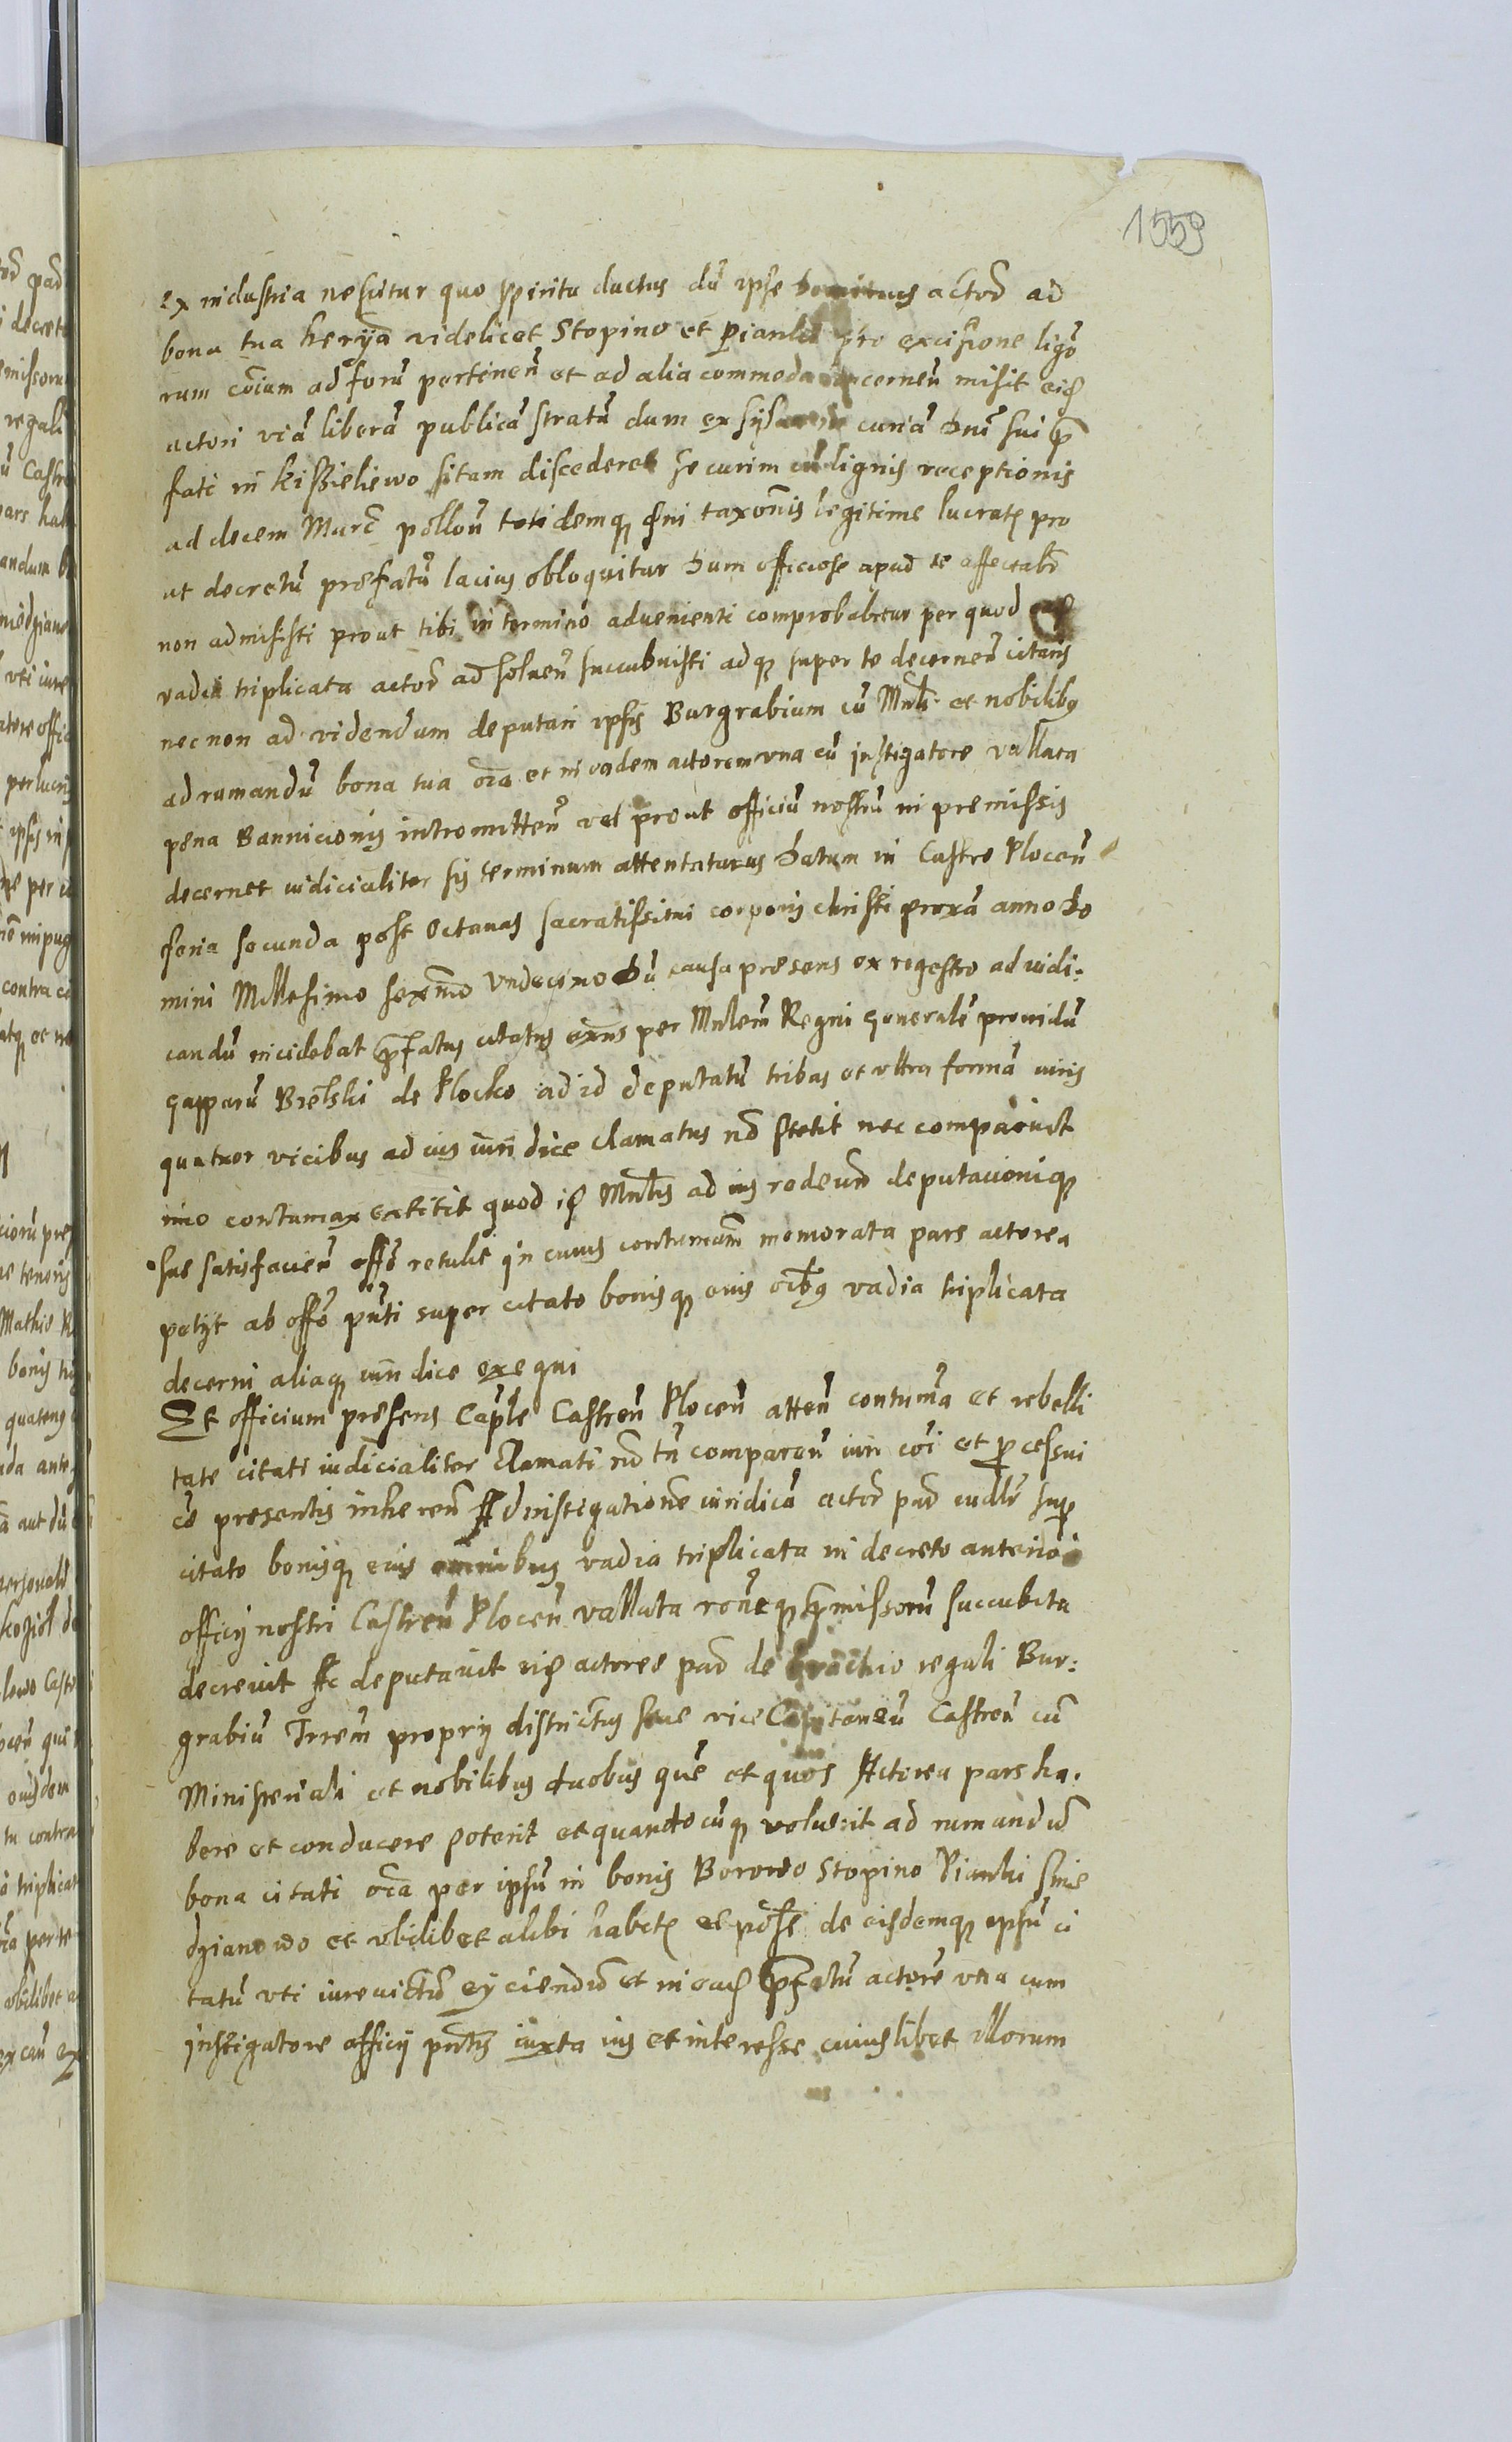 1559
ex industria nescitur quo spiritu ductus dū ipse actor̄ ad
bona tua heryā videlicet Stopino et Pianki pro excisione lignō
rum cōiam ad forū pertineñ et ad alia commoda misit eiꝫ
actori viā liberā publicā stratā dum ex curiā dn̄i sui p̄
fati in Kisszielewo sitam discederet securim cū lignis receptionis
ad decem Marc̄ polloñ totidemqꝫ taxōnis legitime lucratꝫ pro
ut decretū prefatū lacius obloquitur Dum officiose apud te affectab̄
non admisisti prout tibi in termino advenienti comprobabitur per quod
vadia triplicata actor̄ ad solueñ succubuisti adqꝫ super te decerneñ citaris
nec non ad videndum deputari ipsis Burgrabium cū Mnl̄i et nobilibꝫ
ad rumandū bona tua oīa et in eadem actorem vna cū instigatore vallata
pena Bannicionis intromitteñ vel prout officiū nostrū in premissis
decernet iudicialiter sis terminum attentaturus Datum in Castro Ploceñ
feria secunda post Octauas sacratissimi corporis christi proxā anno Do
mini Millesimo sexmo Vndecimo Dū causa presens ex regestro ad iudi:
candū incidebat p̄fatus citatus per Mnlem Regni Generalē providū
Gasparū de Plocko ad id deputatū tribas et vltra formā iuris
quatuor vicibus ad ius iuri dice clamatus nō stetit nec comparuit
imo contumax extitit quod iꝫ Mnl̄is ad ius redeund deputacioniqꝫ
sue satisfacieñ offō retulit in cuius contumām memorata pars actorea
petijt ab offō pūti super citato bonisqꝫ euis oibꝫ vadia triplicata
decerni aliaqꝫ iuri dice exequi
Et officium presens Capl̄e Castreñ Ploceñ atteñ contumā et rebelli
tate citati iudicialiter Clamati nō tñ compareñ iuri cōi et pcessui
cē presentis inhereñ Ad instigationē iuridicā actor̄ par̄ sup
citato bonisqꝫ euis omnibus vadia triplicata in decreto anteriori
officij nostri Castreñ Ploceñ vallata rōneqꝫ p̄missorū succubita
decreuit Ac deputavit eiꝫ actoree par̄ de brachio regali Bur:
grabiū Trrem proprij districtus siue vice Capitaneū Castreñ cū
Ministeriali et nobilibus duobus quē et quos Actorea pars ha:
bere et conducere poterit et quandocūqꝫ voluerit ad rumandū
bona citati oīa per ipsū in bonis Borowo Stopino Pianki Snie
dzianowo et vbilibet alibi habitꝫ et posse de eisdemqꝫ ipsū ci
tatū vti iurevictū eijciendū et in eaꝫ p̄fatū actorē vna cum
instigatore officij pntis iuxta ius et interesse cuiuslibet illorum